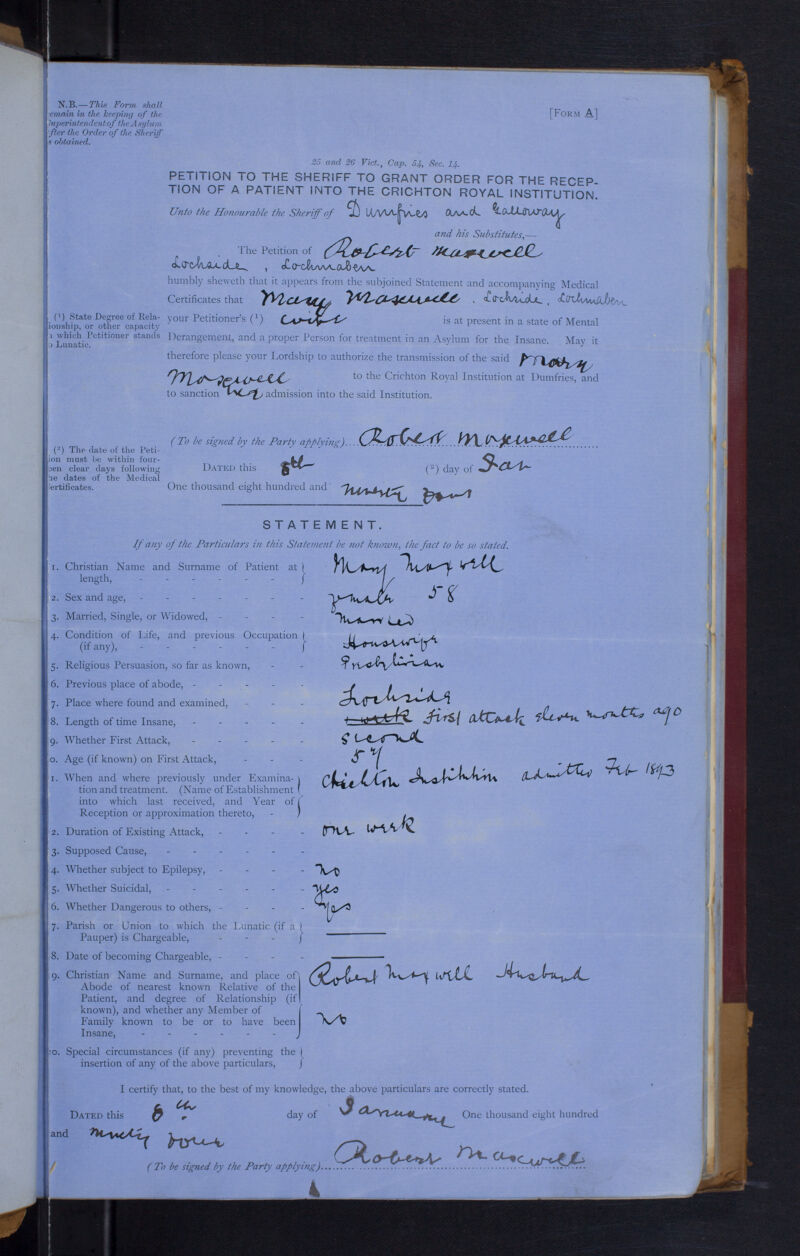 N.B.—This Form shall
emain in the keeping of the
uperintendent of the Asylum
fter the Order of the Sheriff
s obtained.
[FORM A]
25 and 26 Vict., Cap. 54, Sec. 14.
PETITION TO THE SHERIFF TO GRANT ORDER FOR THE RECEP-
TION OF A PATIENT INTO THE CRICHTON ROYAL INSTITUTION.
Unto the Honourable the Sheriff of Dumfries and Galloway
and his Substitutes,—
The Petition of Robert Maxwell
Lochside, Lochmaben
humbly sheweth that it appears from the subjoined Statement and accompanying Medical
Certificates that Mary Maxwell. Lochside, Lochmaben
(1) State Degree of Rela-
ionship, or other capacity
n which Petitioner stands
o Lunatic.
your Petitioner's (1) wife is at present in a state of Mental
Derangement, and a proper Person for treatment in an Asylum for the Insane. May it
therefore please your Lordship to authorize the transmission of the said Mary
Maxwell to the Crichton Royal Institution at Dumfries, and
to sanction her admission into the said Institution.
(To be signed by the Party applying) Robert Maxwell
(2) The date of the Peti-
ion must be within four-
een clear days following
he dates of the Medical
ertificates.
DATED this 8th (2) day of Jan
One thousand eight hundred and ninety four
STATEMENT.
If any of the Particulars in this Statement be not known, the fact to be so stated.
1. Christian Name and Surname of Patient at length, Mary Maxwell
2. Sex and age, female 58
3. Married, Single, or Widowed, Married
4. Condition of Life, and previous Occupation (if any), Housewife
5. Religious Persuasion, so far as known, Presbyterian
6. Previous place of abode,
7. Place where found and examined, Lochside
8. Length of time Insane, 1 week First attack eleven months ago
9. Whether First Attack, second
0. Age (if known) on First Attack, 57
1. When and where previously under Examina-
tion and treatment. (Name of Establishment
into which last received, and Year of
Reception or approximation thereto, Crichton Institution admitted Feb 1893
2. Duration of Existing Attack, one week
3. Supposed Cause,
4. Whether subject to Epilepsy, No
5. Whether Suicidal, yes
6. Whether Dangerous to others, yes
7. Parish or Union to which the Lunatic (if a
Pauper) is Chargeable,
8. Date of becoming Chargeable,
9. Christian Name and Surname, and place of
Abode of nearest known Relative of the
Patient, and degree of Relationship (if
known), and whether any Member of
Family known to be or to have been
Insane,
Robert Maxwell Husband
No
0. Special circumstances (if any) preventing the
insertion of any of the above particulars,
I certify that, to the best of my knowledge, the above particulars are correctly stated.
DATED this 8th day of January One thousand eight hundred
and ninety four
(To be signed by the Party applying) Robert Maxwell